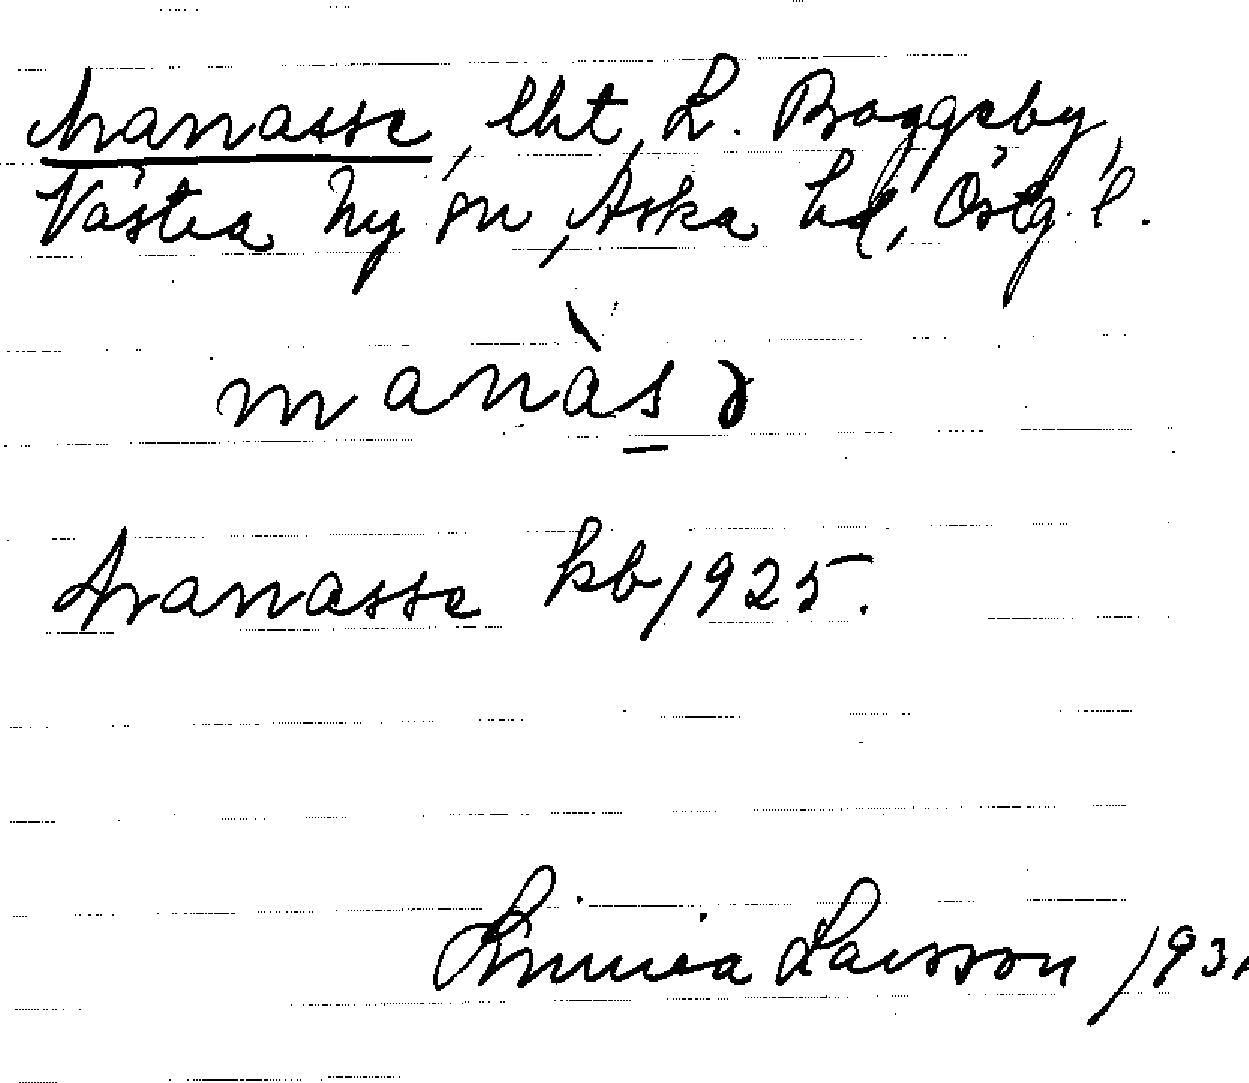 Manasse, lht, L. Baggeby,
Västra Ny sn, Aska hd, Östg. l.
manàsə
Manasse kb 1925.
Linnea Larsson 193